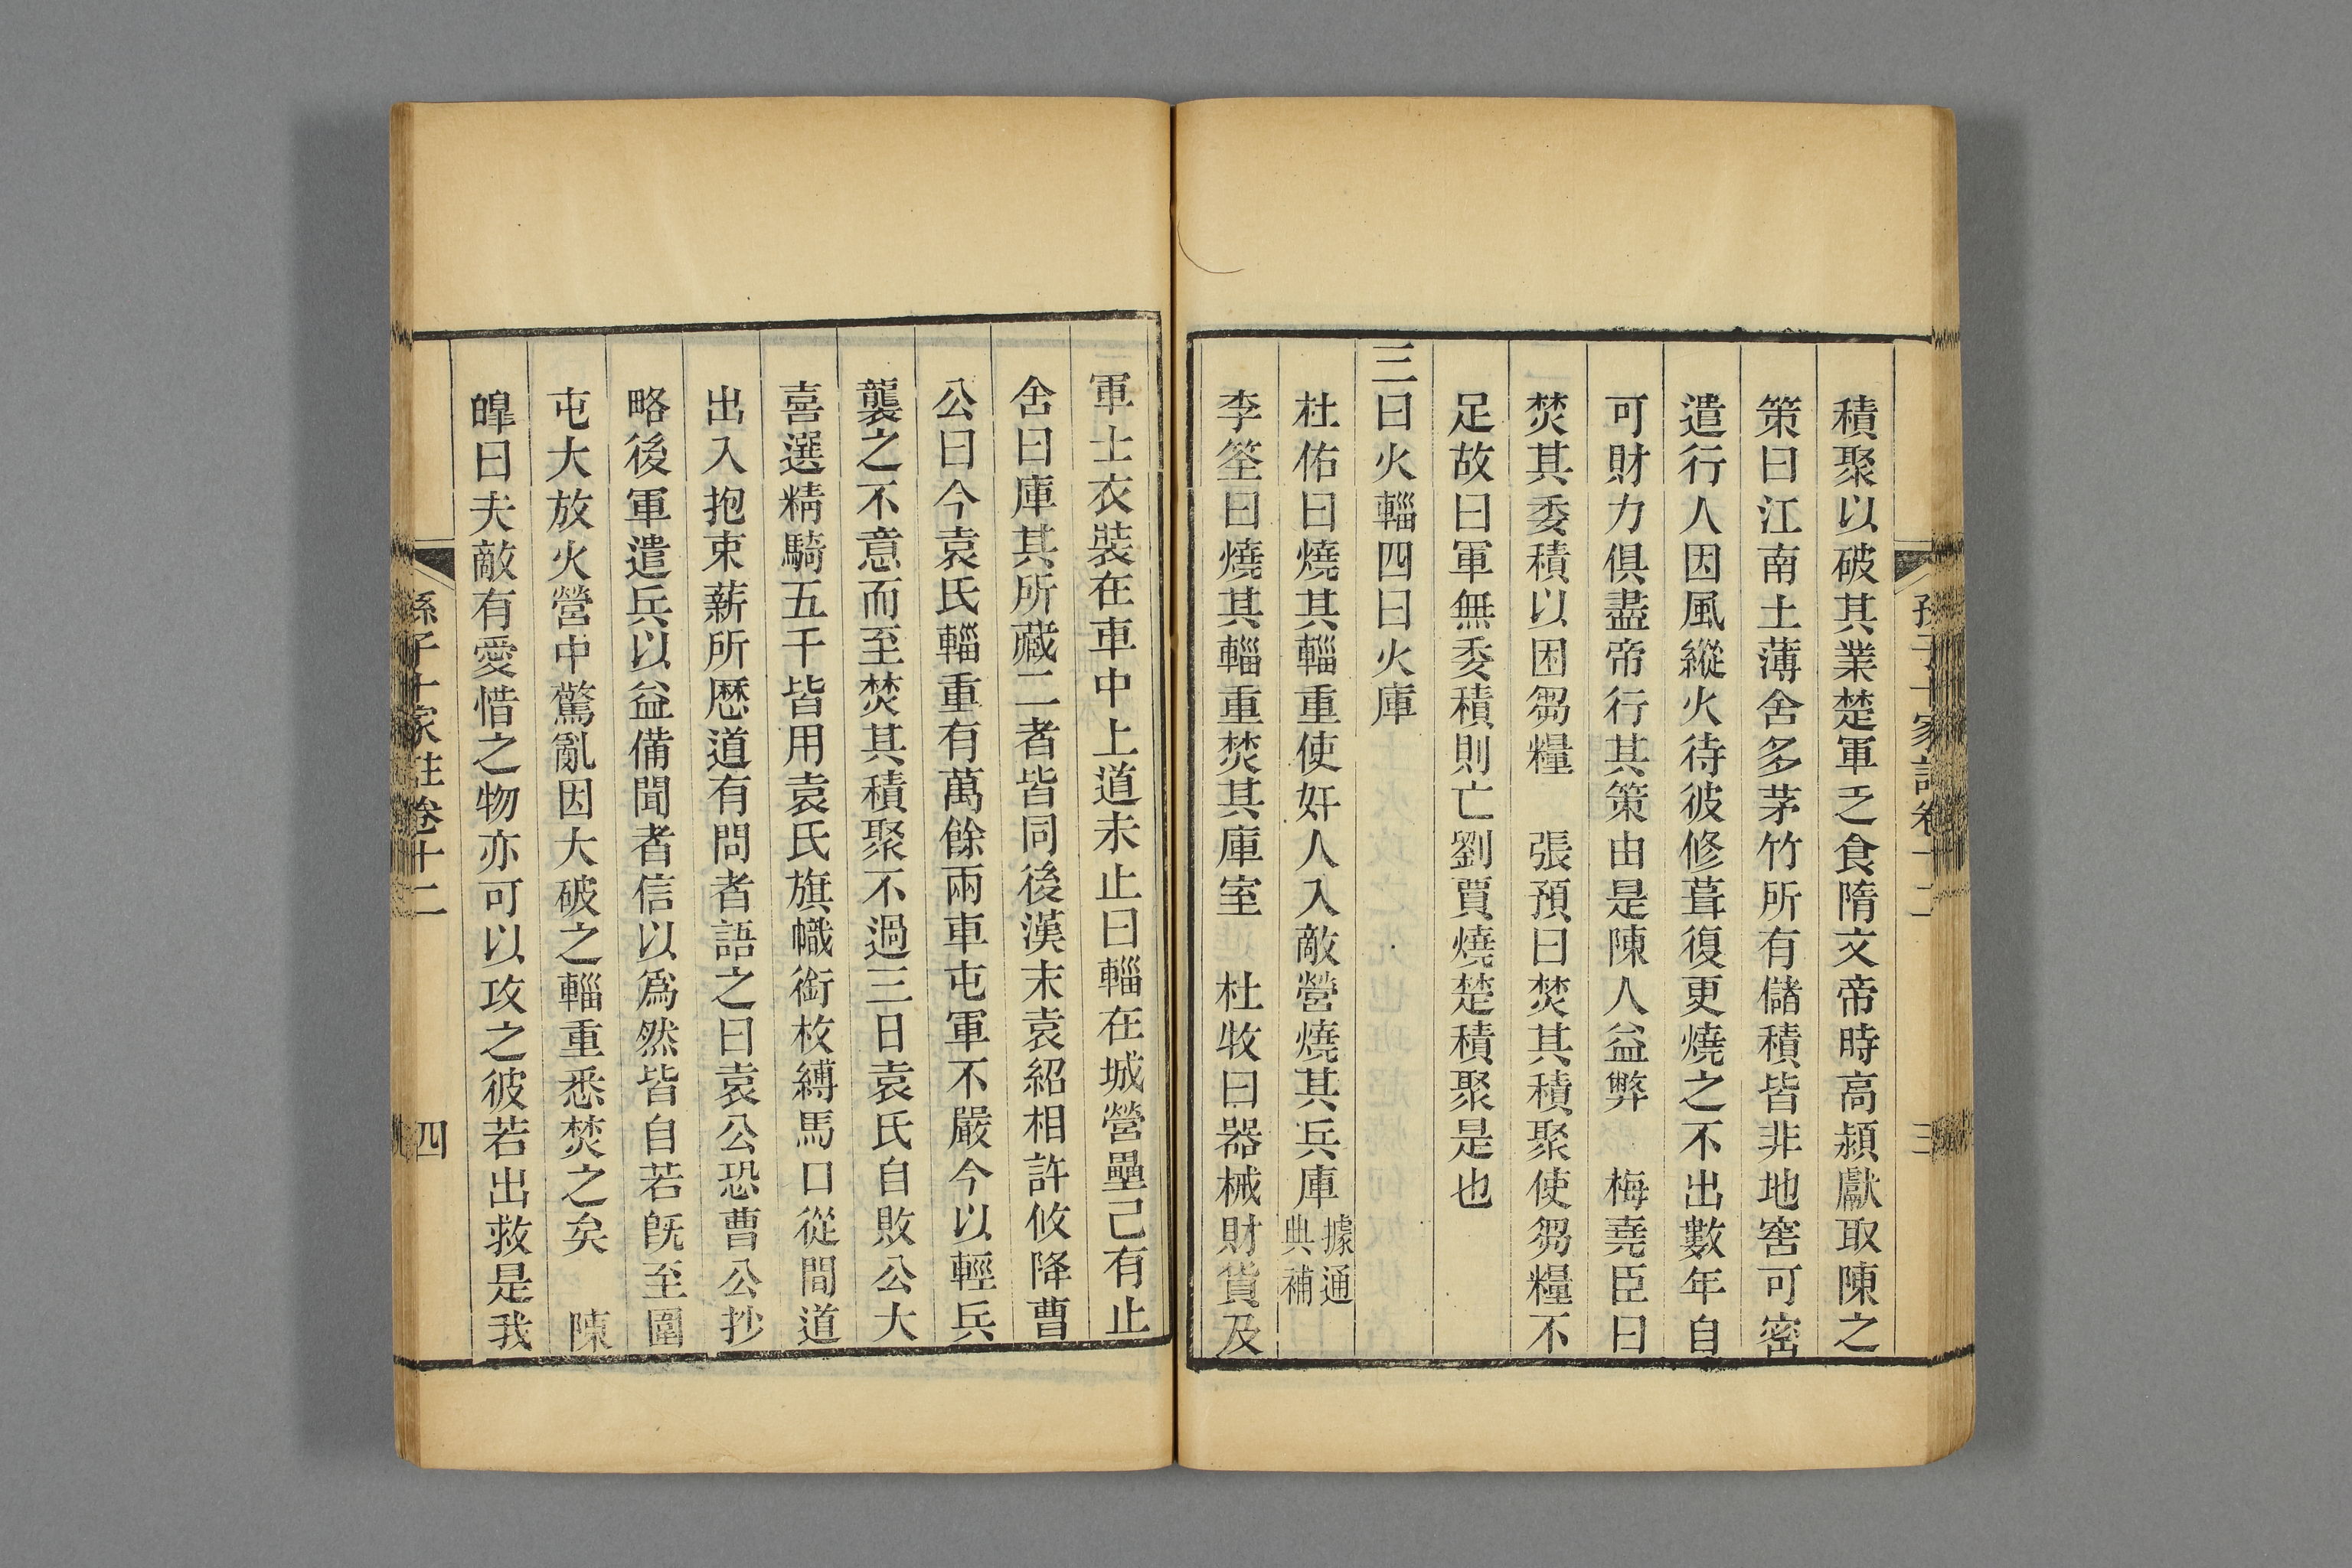 積聚以破其業楚軍乏食隋文帝時高熲獻取陳之
策曰江南土薄舍多茅竹所有儲積皆非地窖可密
遣行人因風縱火待彼修葺復更燒之不出數年自
可財力俱盡帝行其策由是陳人益弊 梅堯臣曰
焚其委積以困芻糧 張預曰焚其積聚使芻糧不
足故曰軍無委積則亡劉賈燒楚積聚是也
三曰火輜四曰火庫
杜佑曰燒其輜重使奸人入敵營燒其兵庫據通典補
李筌曰燒其輜重焚其庫室 杜牧曰器械財貨及
軍士衣裝在車中上道未止曰輜在城營壘己有止
舍曰庫其所藏二者皆同後漢末袁紹相許攸降曹
公曰今袁氏輜重有萬餘兩車屯軍不嚴今以輕兵
襲之不意而至焚其積聚不過三日袁氏自敗公大
喜選精騎五千皆用袁氏旗幟銜枚縛馬口從間道
出入抱束薪所歷道有問者語之曰袁公恐曹公抄
略後軍遣兵以益備聞者信以爲然皆自若旣至圍
屯大放火營中驚亂因大破之輜重悉焚之矣 陳
皥曰夫敵有愛惜之物亦可以攻之彼若出救是我
孫子十家註卷十二
四